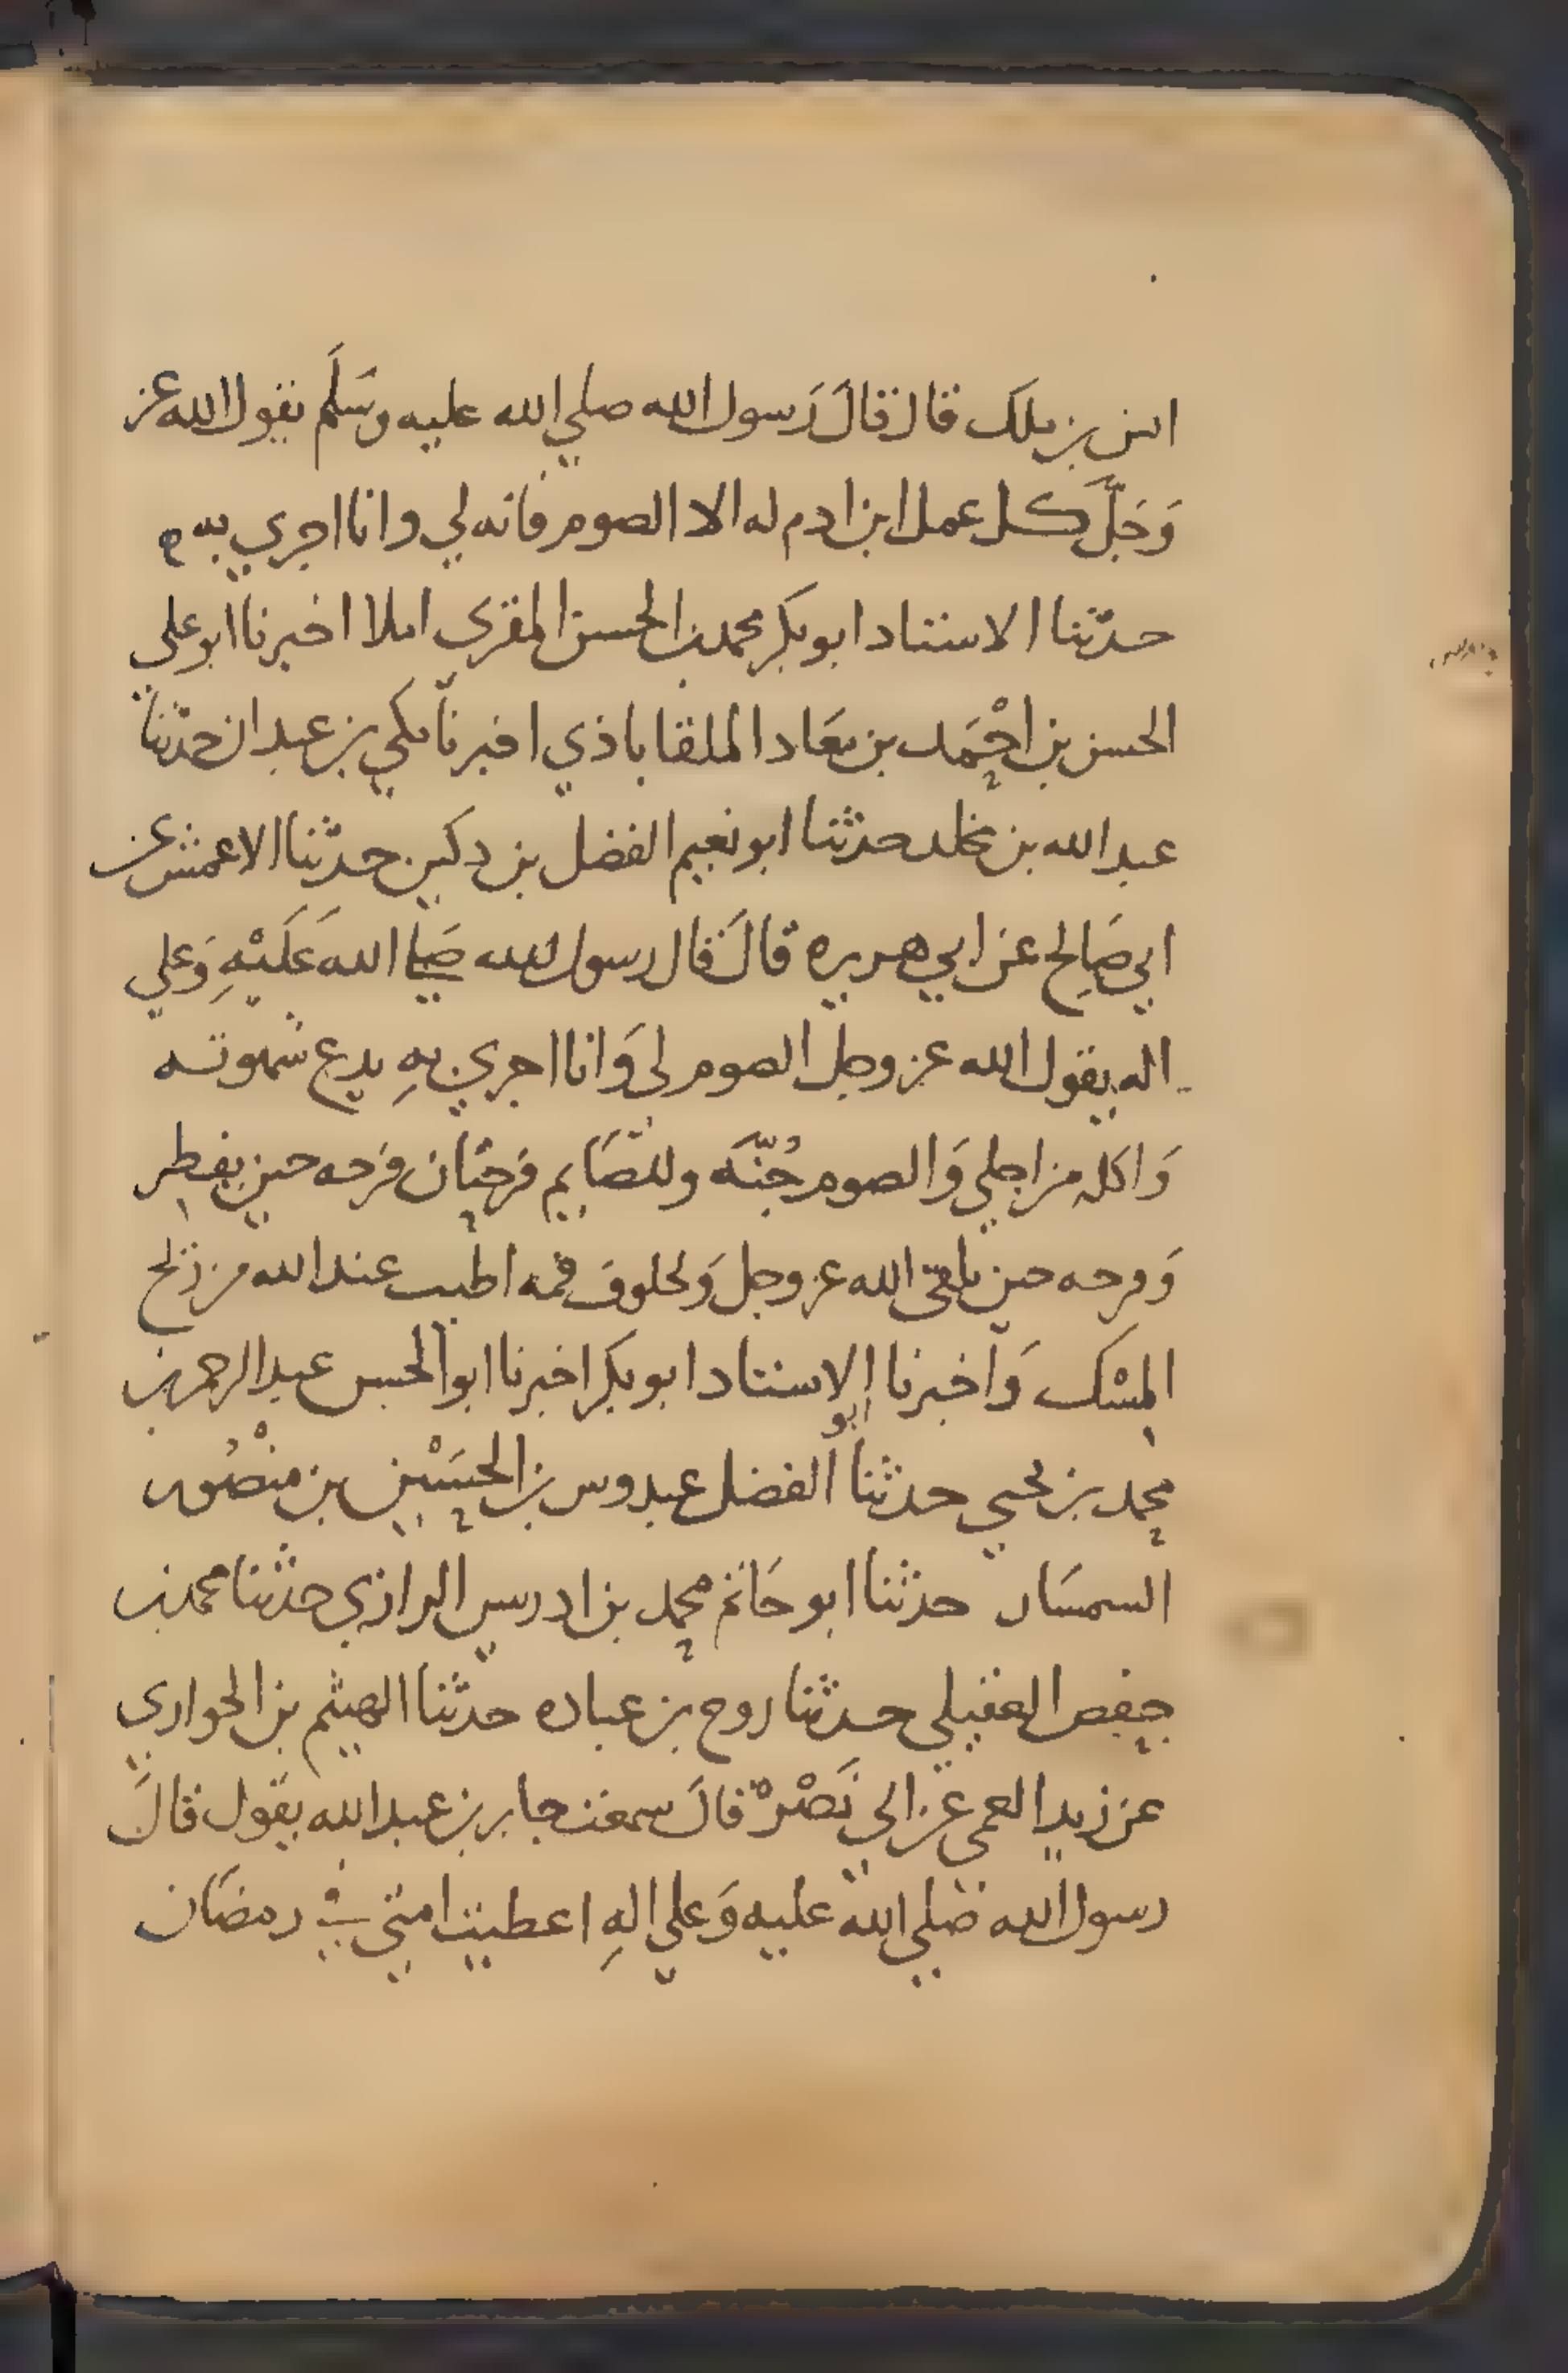 انس بن ملك قال قال رَسول الله صلي الله عليه وسَلَّم يقول الله عز
وَجَلَّ كل عمل ابن ادم له الا الصوم فانه لي وانا اجري به
حدثنا الاستاد ابو بكر محمد بن الحسن المقري املا اخبرنا ابو علي
الحسن بن احْمَد بن معَاد الملقاباذي اخبرنا مكي بن عبدان حدثنا
عبد الله بن مخلد حدثنا ابو نعيم الفضل بن دكين حدثنا الاعمش عن
ابي صَالِح عن ابي هريره قالَ قال رسول الله صَلي الله عَلَيْهِ وَعلي
اله يقول الله عز وجل الصوم لي وَانا اجري بهِ يدع شهوته
وَاكله من اجلي وَالصوم جُنَّه وللصَّايم فرحتَان فرحه حين يفطر
وَفرحه حين يلقي الله عز وجل وَلخلوف فمه اطيب عند الله من ريح
المِسْك وَاخبرنا الاستاد ابو بكر اخبرنا ابو الحسن عبد الرحمن بن
محمد بن يحيي حدثنا ابو الفضل عبدوس بن الحسَيْن بن منْصُور
السمسَار حدثنا ابو حَاتم محمد بن ادريس الرازي حدثنا محمد بن
حفص العقيلي حدثنا روح بن عباده حدثنا الهيثم بن الحواري
عن زيد العمي عن ابي نَصْرَه قالَ سمعت جابر بن عبد الله يقول قالَ
رسول الله صَلي الله عليه وَعلي الهِ اعطيت امتي في رمضَان